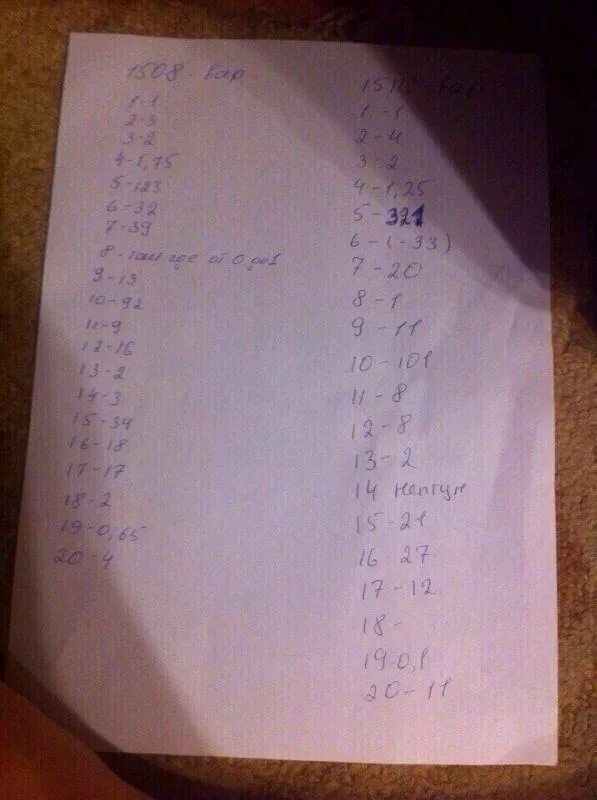 1508 - вар
1-1
2-3
3-2
4-1,75
5-123
6-32
7-39
8-там где от 0 до 1
9-13
10-92
11-9
12-16
13-2
14-3
15-39
16-18
17-17
18-2
19-0,65
20-4
1510 - вар
1-1
2-4
3-2
4-1,25
5-321
6-(-33)
7-20
8-1
9-11
10-101
11-8
12-8
13-2
14 нептун
15-21
16-27
17-12
18-
19-0,1
20-11